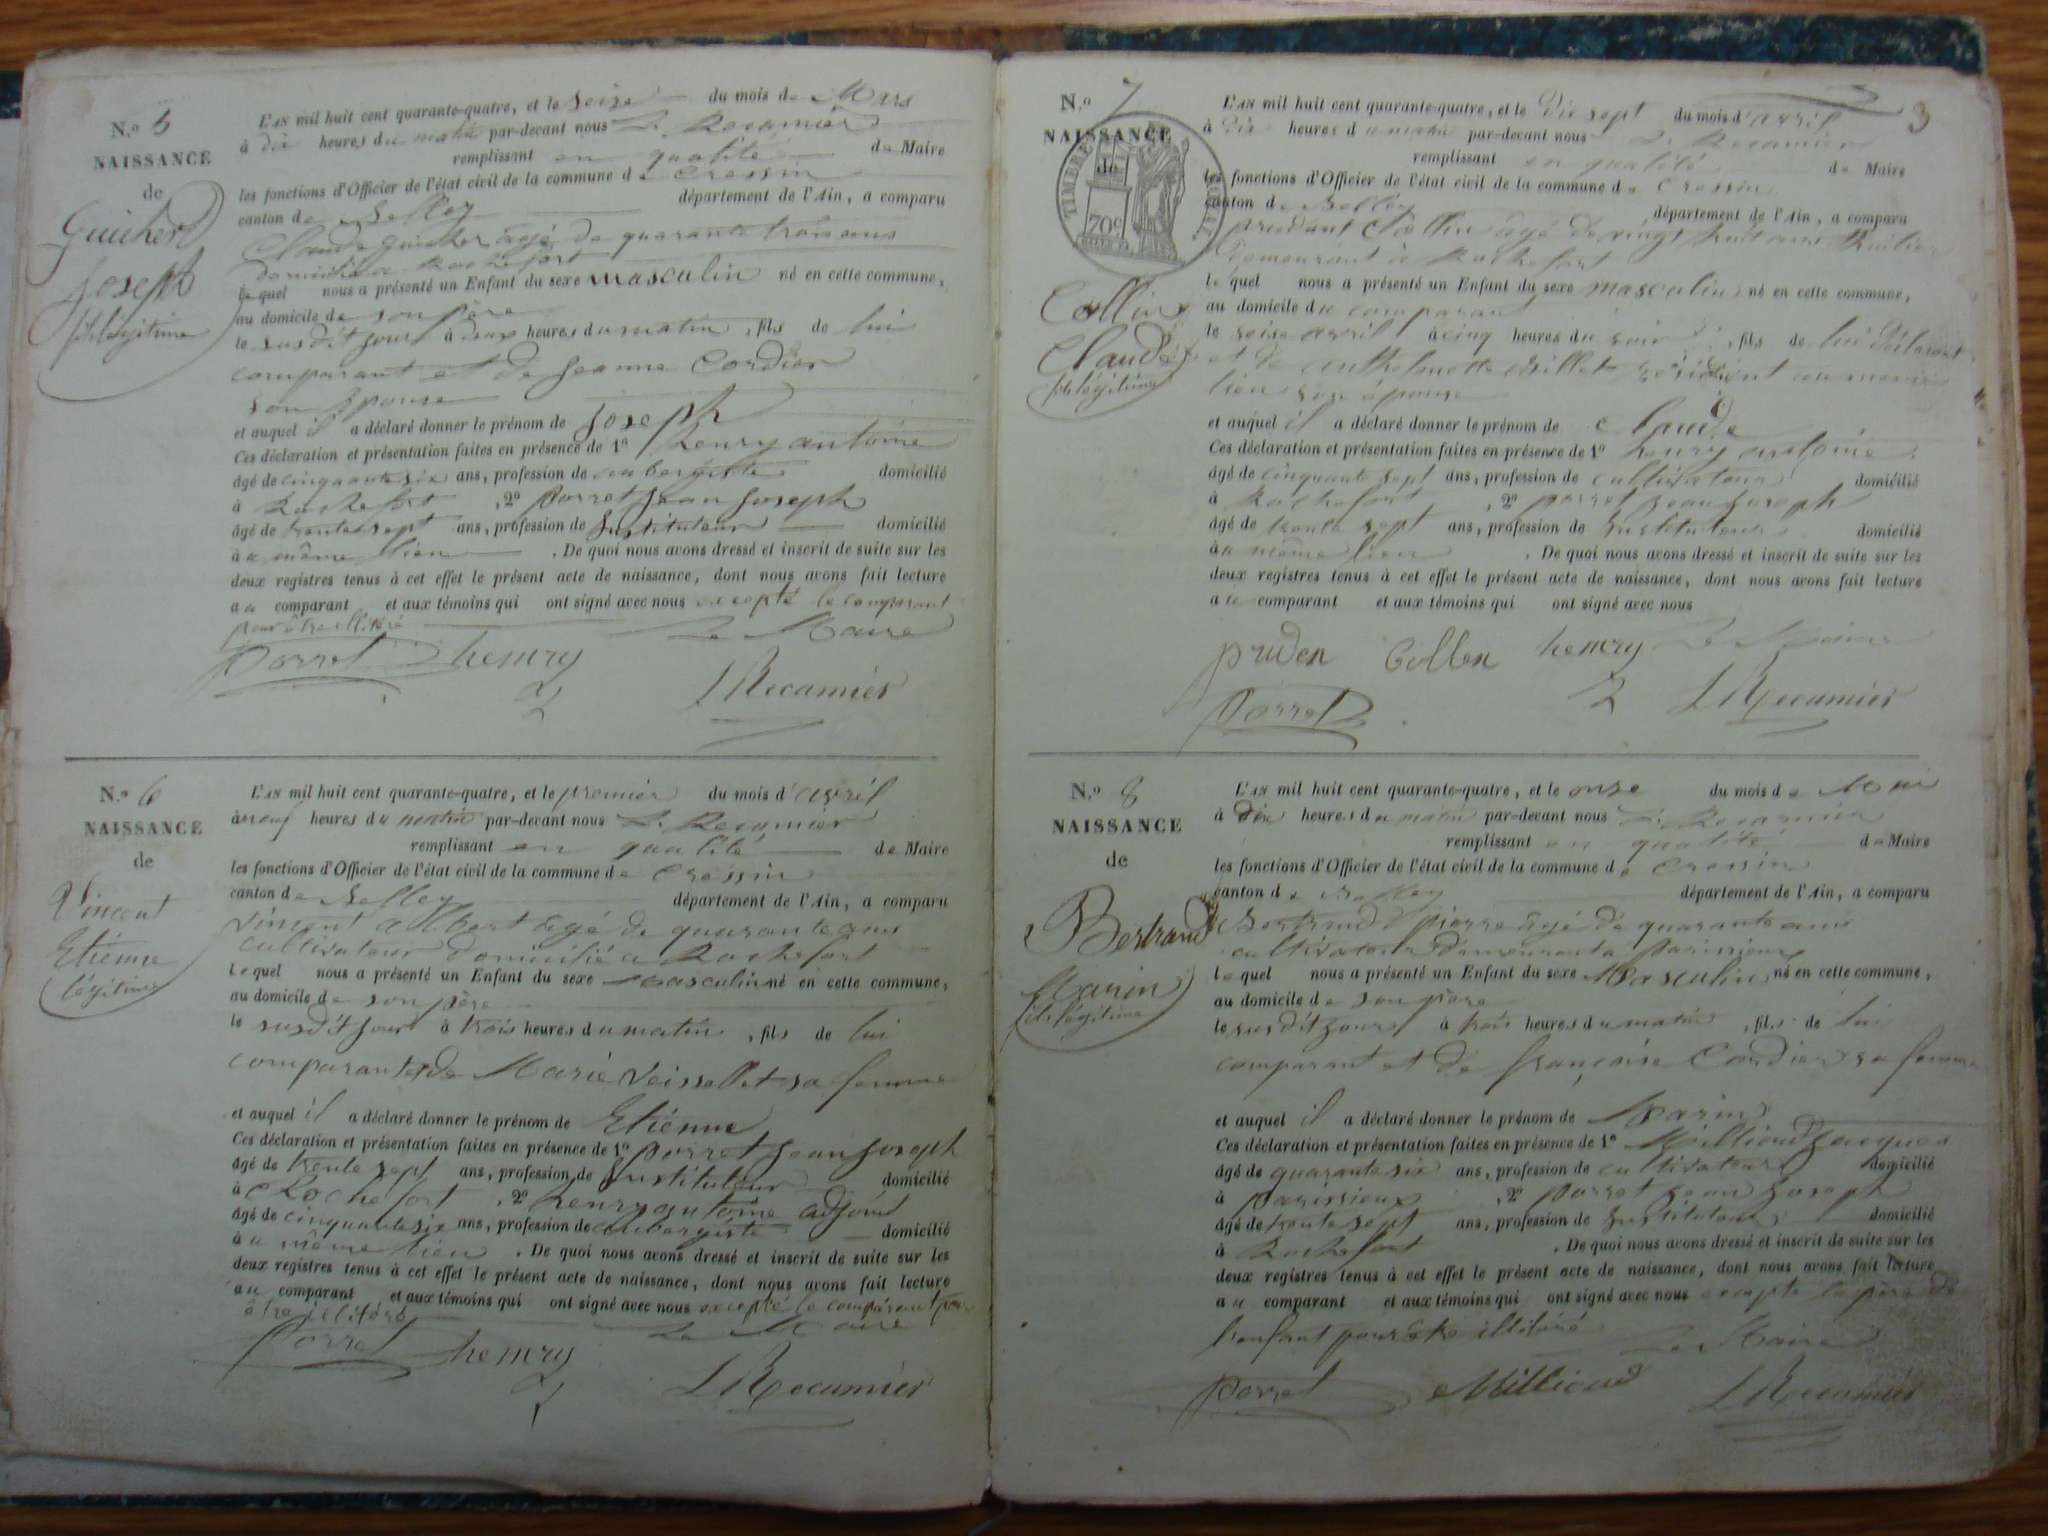 N.º 5
NAISSANCE
de
Guicher
Joseph
fils légitime
L'AN mil huit cent quarante-quatre, et le seize du mois de Mars
à dix heures du matin par-devant nous L. Recamier
remplissant en qualité de Maire
les fonctions d'Officier de l'état civil de la commune de Cressin
canton de Belley département de l'Ain, a comparu
Claude Guicher agé de quarante trois ans
domicilié a Rochefort
lequel nous a présenté un Enfant du sexe masculin né en cette commune,
au domicile de son père
le susdit jour à deux heures du matin, fils de lui
comparant et de Jeanne Cordier
son Épouse
et auquel il a déclaré donner le prénom de Joseph
Ces déclaration et présentation faites en présence de 1º henry antoine
âgé de cinquante six ans, profession de aubergiste domicilié
à Rochefort, 2º Porret Jean Joseph
âgé de trente sept ans, profession de Instituteur domicilié
à u même lieu. De quoi nous avons dressé et inscrit de suite sur les
deux registres tenus à cet effet le présent acte de naissance, dont nous avons fait lecture
au comparant et aux témoins qui ont signé avec nous excepté le comparant
pour être illitéré
Le Maire
Porret henry L Recamier
N.º 6
NAISSANCE
de
Vincent
Etiénne
légitime
L'AN mil huit cent quarante-quatre, et le premier du mois d'avril
à neuf heures du matin par-devant nous L. Recamier
remplissant en qualité de Maire
les fonctions d'Officier de l'état civil de la commune de Cressin
canton de Belley département de l'Ain, a comparu
Vincent albert agé de quarante ans
cultivateur domicilié a Rochefort
lequel nous a présenté un Enfant du sexe Masculin né en cette commune,
au domicile de son père
le susdit jour à trois heures du matin, fils de lui
comparant et de Marie Veissellet sa femme
et auquel il a déclaré donner le prénom de Etiénne
Ces déclaration et présentation faites en présence de 1º Porret Jean Joseph
âgé de trente sept ans, profession de Instituteur domicilié
à Rochefort, 2º henry antoine adjoint
âgé de cinquante six ans, profession de aubergiste domicilié
à u même lieu. De quoi nous avons dressé et inscrit de suite sur les
deux registres tenus à cet effet le présent acte de naissance, dont nous avons fait lecture
au comparant et aux témoins qui ont signé avec nous excepté le comparant pour
être illitéré
Le Maire
Porret henry L Recamier
3
N.º 7
NAISSANCE
de
TIMBRE ROYAL
70c
Collin
Claude
fils légitime
L'AN mil huit cent quarante-quatre, et le dix sept du mois d'avril
à dix heures du matin par-devant nous L. Recamier
remplissant en qualité de Maire
les fonctions d'Officier de l'état civil de la commune de Cressin
canton de Belley, département de l'Ain, a comparu
prudant Collin agé de vingt huit ans
demeurant à Rochefort
lequel nous a présenté un Enfant du sexe masculin né en cette commune,
au domicile du comparant
le seise avril à cinq heures du soir, fils de lui déclarant
et de anthelmette résident au meme
lieu son épouse
et auquel il a déclaré donner le prénom de Claude
Ces déclaration et présentation faites en présence de 1º henry antoine
âgé de cinquante sept ans, profession de cultivateur domicilié
à Rochefort, 2º porret Jean Joseph
âgé de trente sept ans, profession de Instituteur domicilié
à u même lieu. De quoi nous avons dressé et inscrit de suite sur les
deux registres tenus à cet effet le présent acte de naissance, dont nous avons fait lecture
a le comparant et aux témoins qui ont signé avec nous
pruden Collen henry Le Maire
Porret L Recamier
N.º 8
NAISSANCE
de
Bertrand
Marin
fils légitime
L'AN mil huit cent quarante-quatre, et le onze du mois de Mai
à dix heures du matin par-devant nous L. Recamier
remplissant en qualité de Maire
les fonctions d'Officier de l'état civil de la commune de Cressin
canton de Belley département de l'Ain, a comparu
Bertrand pierre agé de quarante ans
cultivateur demeurant a parissieux
lequel nous a présenté un Enfant du sexe Masculin né en cette commune,
au domicile de son père
le susdit jour à trois heures du matin, fils de lui
comparant et de françoise Cordier sa femme
et auquel il a déclaré donner le prénom de Marin
Ces déclaration et présentation faites en présence de 1º Milliand Jacques
âgé de quarante six ans, profession de cultivateur domicilié
à parissieux, 2º porret Jean Joseph
âgé de trente sept ans, profession de Instituteur domicilié
à Rochefort. De quoi nous avons dressé et inscrit de suite sur les
deux registres tenus à cet effet le présent acte de naissance, dont nous avons fait lecture
au comparant et aux témoins qui ont signé avec nous excepté le père de
l'enfant pour être illitéré Le Maire
Porret Milliand L Recamier